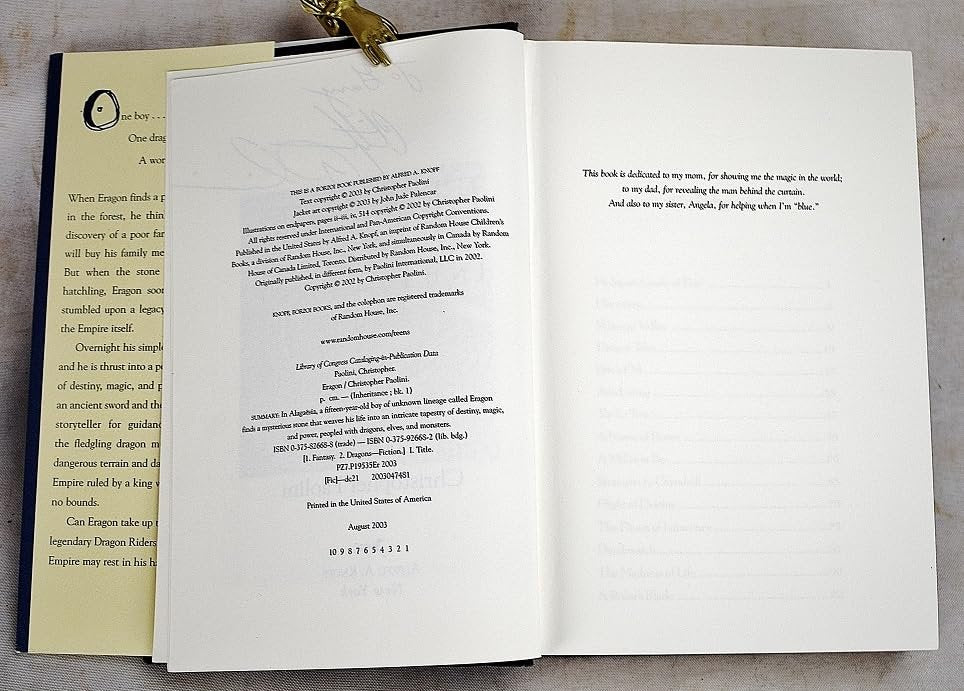 One boy . . .
One drag
A wor
When Eragon finds a p
in the forest, he thin
discovery of a poor far
will buy his family me
But when the stone
hatchling, Eragon soon
stumbled upon a legacy
the Empire itself.
Overnight his simple
and he is thrust into a p
of destiny, magic, and p
an ancient sword and the
storyteller for guidanc
the fledgling dragon m
dangerous terrain and da
Empire ruled by a king w
no bounds.
Can Eragon take up t
legendary Dragon Riders
Empire may rest in his h
THIS IS A BORZOI BOOK PUBLISHED BY ALFRED A. KNOPF
Text copyright © 2003 by Christopher Paolini
Jacket art copyright © 2003 by John Jude Palencar
Illustrations on endpapers, pages ii–iii, iv, 514 copyright © 2002 by Christopher Paolini
All rights reserved under International and Pan-American Copyright Conventions.
Published in the United States by Alfred A. Knopf, an imprint of Random House Children's
Books, a division of Random House, Inc., New York, and simultaneously in Canada by Random
House of Canada Limited, Toronto. Distributed by Random House, Inc., New York.
Originally published, in different form, by Paolini International, LLC in 2002.
Copyright © 2002 by Christopher Paolini.
KNOPF, BORZOI BOOKS, and the colophon are registered trademarks
of Random House, Inc.
www.randomhouse.com/teens
Library of Congress Cataloging-in-Publication Data
Paolini, Christopher.
Eragon / Christopher Paolini.
p. cm. — (Inheritance ; bk. 1)
SUMMARY: In Alagaësia, a fifteen-year-old boy of unknown lineage called Eragon
finds a mysterious stone that weaves his life into an intricate tapestry of destiny, magic,
and power, peopled with dragons, elves, and monsters.
ISBN 0-375-82668-8 (trade) — ISBN 0-375-92668-2 (lib. bdg.)
[1. Fantasy. 2. Dragons—Fiction.] I. Title.
PZ7.P19535Er 2003
[Fic]—dc21 2003047481
Printed in the United States of America
August 2003
10 9 8 7 6 5 4 3 2 1
This book is dedicated to my mom, for showing me the magic in the world;
to my dad, for revealing the man behind the curtain.
And also to my sister, Angela, for helping when I'm "blue."